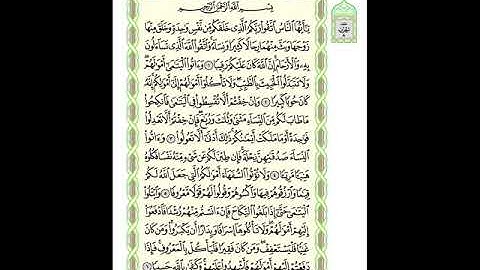 بِسْمِ اللَّهِ الرَّحْمَٰنِ الرَّحِيمِ
يَا أَيُّهَا النَّاسُ اتَّقُوا رَبَّكُمُ الَّذِي خَلَقَكُم مِّن نَّفْسٍ وَاحِدَةٍ وَخَلَقَ مِنْهَا
زَوْجَهَا وَبَثَّ مِنْهُمَا رِجَالًا كَثِيرًا وَنِسَاءً وَاتَّقُوا اللَّهَ الَّذِي تَسَاءَلُونَ
بِهِ وَالْأَرْحَامَ إِنَّ اللَّهَ كَانَ عَلَيْكُمْ رَقِيبًا ١ وَآتُوا الْيَتَامَىٰ أَمْوَالَهُمْ
وَلَا تَتَبَدَّلُوا الْخَبِيثَ بِالطَّيِّبِ وَلَا تَأْكُلُوا أَمْوَالَهُمْ إِلَىٰ أَمْوَالِكُمْ إِنَّهُ
كَانَ حُوبًا كَبِيرًا ٢ وَإِنْ خِفْتُمْ أَلَّا تُقْسِطُوا فِي الْيَتَامَىٰ فَانكِحُوا
مَا طَابَ لَكُم مِّنَ النِّسَاءِ مَثْنَىٰ وَثُلَاثَ وَرُبَاعَ فَإِنْ خِفْتُمْ أَلَّا تَعْدِلُوا
فَوَاحِدَةً أَوْ مَا مَلَكَتْ أَيْمَانُكُمْ ذَٰلِكَ أَدْنَىٰ أَلَّا تَعُولُوا ٣ وَآتُوا
النِّسَاءَ صَدُقَاتِهِنَّ نِحْلَةً فَإِن طِبْنَ لَكُمْ عَن شَيْءٍ مِّنْهُ نَفْسًا فَكُلُوهُ
هَنِيئًا مَّرِيئًا ٤ وَلَا تُؤْتُوا السُّفَهَاءَ أَمْوَالَكُمُ الَّتِي جَعَلَ اللَّهُ لَكُمْ
قِيَامًا وَارْزُقُوهُمْ فِيهَا وَاكْسُوهُمْ وَقُولُوا لَهُمْ قَوْلًا مَّعْرُوفًا ٥ وَابْتَلُوا
الْيَتَامَىٰ حَتَّىٰ إِذَا بَلَغُوا النِّكَاحَ فَإِنْ آنَسْتُم مِّنْهُمْ رُشْدًا فَادْفَعُوا
إِلَيْهِمْ أَمْوَالَهُمْ وَلَا تَأْكُلُوهَا إِسْرَافًا وَبِدَارًا أَن يَكْبَرُوا وَمَن كَانَ
غَنِيًّا فَلْيَسْتَعْفِفْ وَمَن كَانَ فَقِيرًا فَلْيَأْكُلْ بِالْمَعْرُوفِ فَإِذَا
دَفَعْتُمْ إِلَيْهِمْ أَمْوَالَهُمْ فَأَشْهِدُوا عَلَيْهِمْ وَكَفَىٰ بِاللَّهِ حَسِيبًا ٦